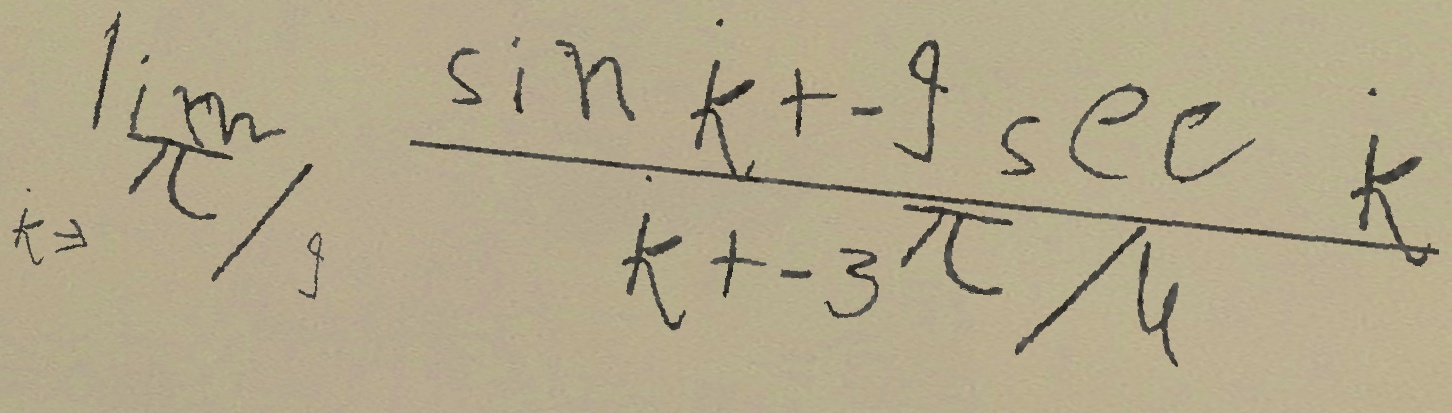 \lim_{\dot{k} \to \pi/9} \frac{\sin \dot{k} + -9 \sec \dot{k}}{\dot{k} + -3\pi/4}